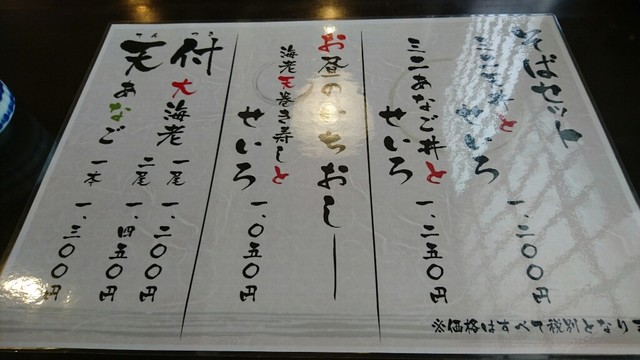 そばセット
ミニ天丼と
せいろ
一、二〇〇円
ミニあなご丼と
せいろ
一、二五〇円
お昼のいちおしー
海老天巻き寿しと
せいろ
一、〇五〇円
天付
大海老 一尾 一、二〇〇円
二尾 一、四五〇円
あなご 一本 一、三〇〇円
※価格はすべて税込